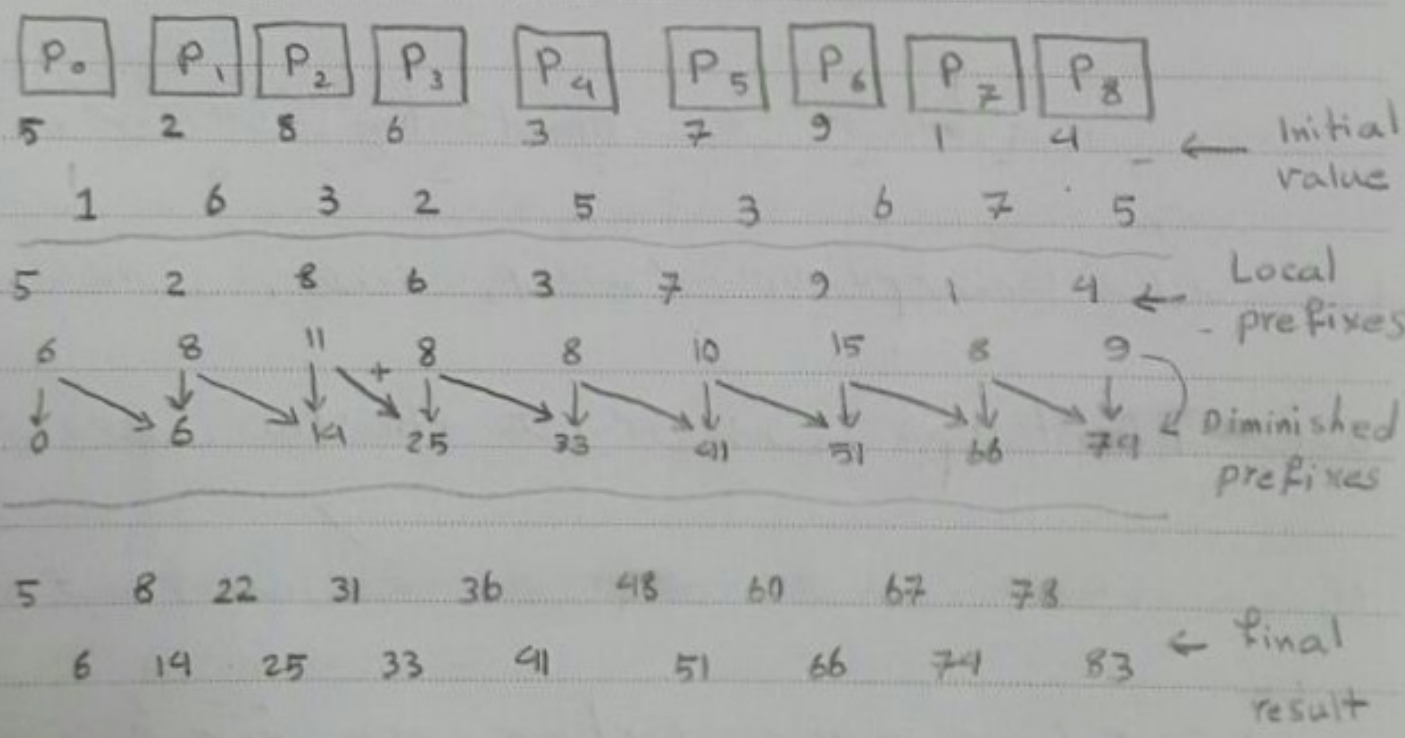 P0 P1 P2 P3 P4 P5 P6 P7 P8
5 2 8 6 3 7 9 1 4 ← Initial
value
1 6 3 2 5 3 6 7 5
5 2 8 6 3 7 9 1 4 ← Local
prefixes
6 8 11 + 8 8 10 15 8 9
0 6 14 25 33 41 51 66 74 Diminished
prefixes
5 8 22 31 36 48 60 67 78
← final
6 14 25 33 41 51 66 74 83
result